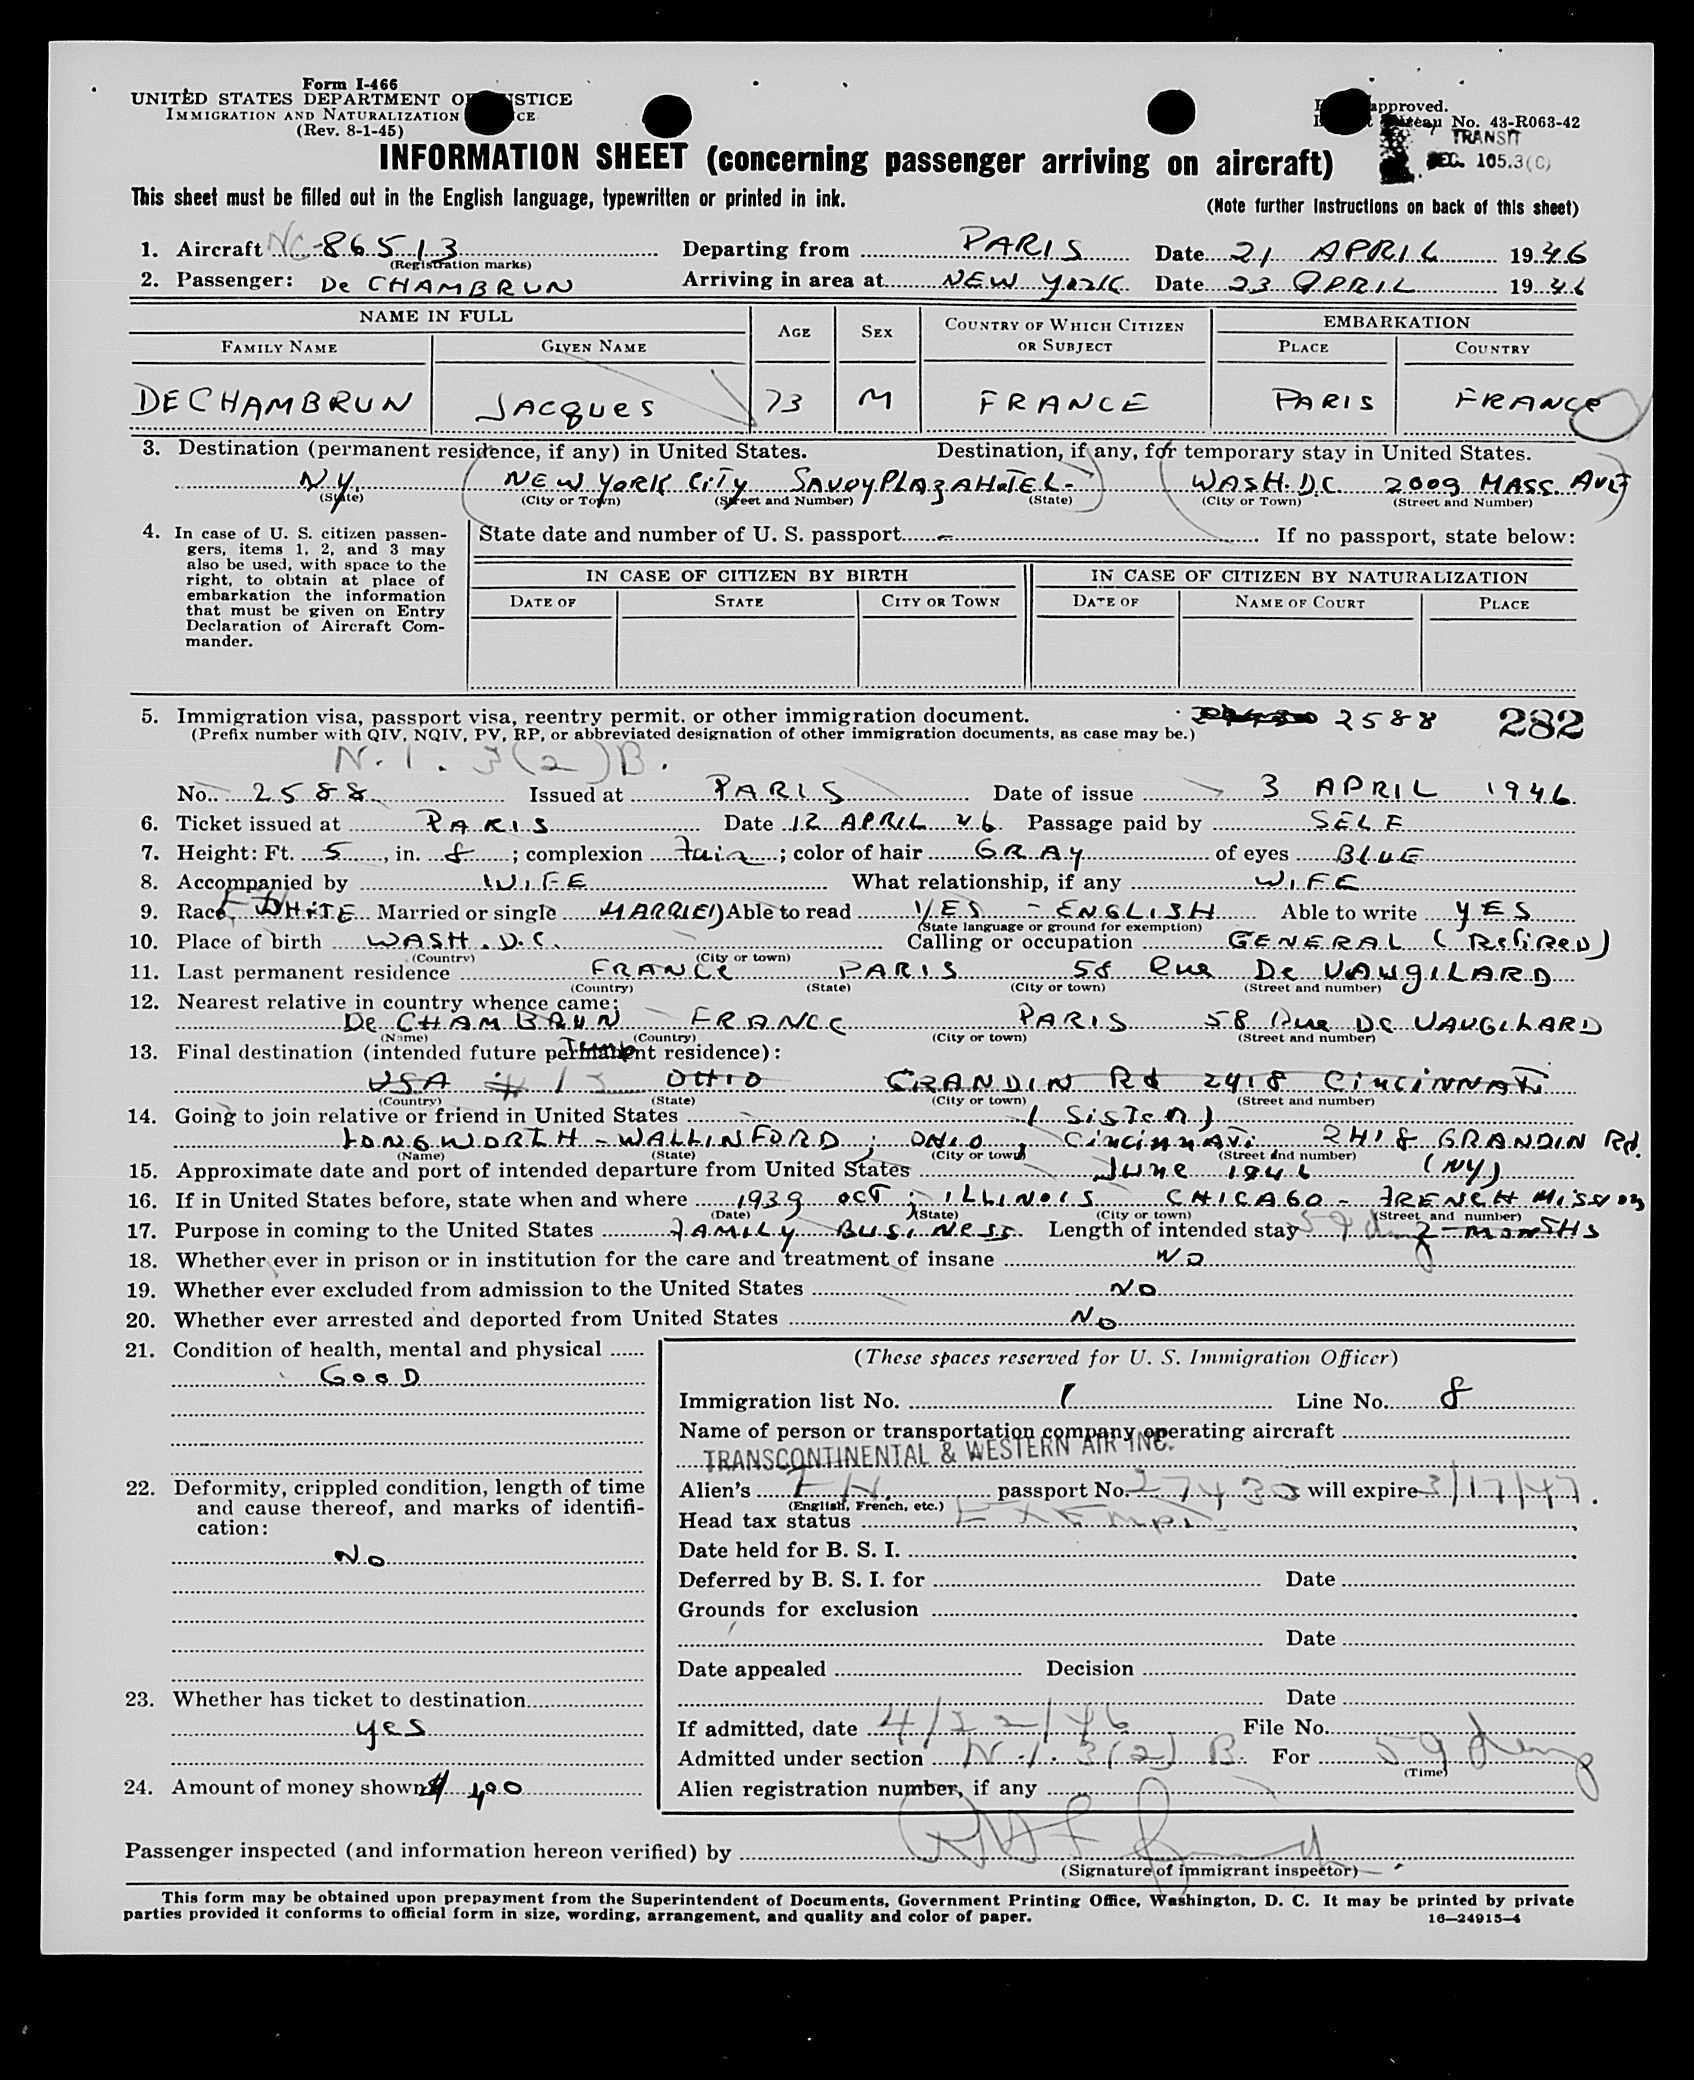 Form I-466
UNITED STATES DEPARTMENT OF JUSTICE
IMMIGRATION AND NATURALIZATION
(Rev. 8-1-45)
approved.
No. 43-R063-42
TRANSIT
SEC. 105.3(C)
INFORMATION SHEET (concerning passenger arriving on aircraft)
This sheet must be filled out in the English language, typewritten or printed in ink.
(Note further instructions on back of this sheet)
1. Aircraft NC-86513 Departing from PARIS Date 21 APRIL 1946
(Registration marks)
2. Passenger: De CHAMBRUN Arriving in area at NEW YORK Date 23 APRIL 1946
NAME IN FULL AGE SEX COUNTRY OF WHICH CITIZEN OR SUBJECT EMBARKATION
FAMILY NAME GIVEN NAME PLACE COUNTRY
DECHAMBRUN JACQUES 73 M FRANCE PARIS FRANCE
3. Destination (permanent residence, if any) in United States. Destination, if any, for temporary stay in United States.
NY. NEW YORK CITY SAVOY PLAZA HOTEL- WASH. D.C. 2009 MASS. AVE
(State) (City or Town) (Street and Number) (State) (City or Town) (Street and Number)
4. In case of U. S. citizen passengers, items 1, 2, and 3 may also be used, with space to the right, to obtain at place of embarkation the information that must be given on Entry Declaration of Aircraft Commander.
State date and number of U. S. passport If no passport, state below:
IN CASE OF CITIZEN BY BIRTH IN CASE OF CITIZEN BY NATURALIZATION
DATE OF STATE CITY OR TOWN DATE OF NAME OF COURT PLACE
5. Immigration visa, passport visa, reentry permit, or other immigration document. 2588 282
(Prefix number with QIV, NQIV, PV, RP, or abbreviated designation of other immigration documents, as case may be.)
N.I. 3(2)B.
No. 2588 Issued at PARIS Date of issue 3 APRIL 1946
6. Ticket issued at PARIS Date 12 APRIL 46 Passage paid by SELF
7. Height: Ft. 5, in. 8; complexion Fair; color of hair GRAY of eyes BLUE
8. Accompanied by WIFE What relationship, if any WIFE
9. Race WHITE Married or single MARRIED Able to read YES - ENGLISH Able to write YES
(State language or ground for exemption)
10. Place of birth WASH. D.C. Calling or occupation GENERAL (RETIRED)
(Country) (City or town)
11. Last permanent residence FRANCE PARIS 58 Rue De VAUGILARD
(Country) (State) (City or town) (Street and number)
12. Nearest relative in country whence came:
De CHAMBRUN FRANCE PARIS 58 Rue De VAUGILARD
(Name) (Country) (City or town) (Street and number)
13. Final destination (intended future permanent residence):
USA OHIO GRANDIN Rd 2418 CINCINNATI
(Country) (State) (City or town) (Street and number)
14. Going to join relative or friend in United States (SISTER)
LONGWORTH - WALLINFORD ; OHIO , Cincinnati 2418 GRANDIN Rd.
(Name) (State) (City or town) (Street and number)
15. Approximate date and port of intended departure from United States June 1946 (NY)
16. If in United States before, state when and where 1939 OCT ; ILLINOIS CHICAGO - FRENCH MISSION
(Date) (State) (City or town) (Street and number)
17. Purpose in coming to the United States FAMILY BUSINESS. Length of intended stay 59 days 2 - MONTHS
18. Whether ever in prison or in institution for the care and treatment of insane NO
19. Whether ever excluded from admission to the United States NO
20. Whether ever arrested and deported from United States NO
21. Condition of health, mental and physical
GOOD
22. Deformity, crippled condition, length of time and cause thereof, and marks of identification:
NO
23. Whether has ticket to destination
yes
24. Amount of money shown $ 400
(These spaces reserved for U. S. Immigration Officer)
Immigration list No. 1 Line No. 8
Name of person or transportation company operating aircraft
TRANSCONTINENTAL & WESTERN AIR INC.
Alien's passport No. will expire 3/17/47.
(English, French, etc.)
Head tax status EXEMPT
Date held for B. S. I.
Deferred by B. S. I. for Date
Grounds for exclusion
Date
Date appealed Decision
Date
If admitted, date 4/22/46 File No.
Admitted under section N.I. 3(2) B. For 59 days
(Time)
Alien registration number, if any
Passenger inspected (and information hereon verified) by
(Signature of immigrant inspector)
This form may be obtained upon prepayment from the Superintendent of Documents, Government Printing Office, Washington, D. C. It may be printed by private
parties provided it conforms to official form in size, wording, arrangement, and quality and color of paper.
16—24915-4